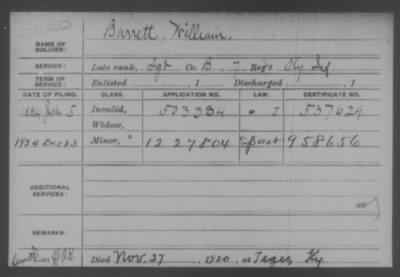 DEAD
Barrett, William.
NAME OF SOLDIER:
SERVICE: Late rank, Sgt Co. B, 7 Reg't Ky Inf
TERM OF SERVICE: Enlisted , 1 Discharged , 1
DATE OF FILING. CLASS. APPLICATION NO. LAW. CERTIFICATE NO.
1884 5 Invalid, 503334 537624
Widow,
1924 Dec 13 Minor, 1227804 958656
ADDITIONAL SERVICES:
REMARKS:
Died Nov. 27, 1920, at Teges Ky.